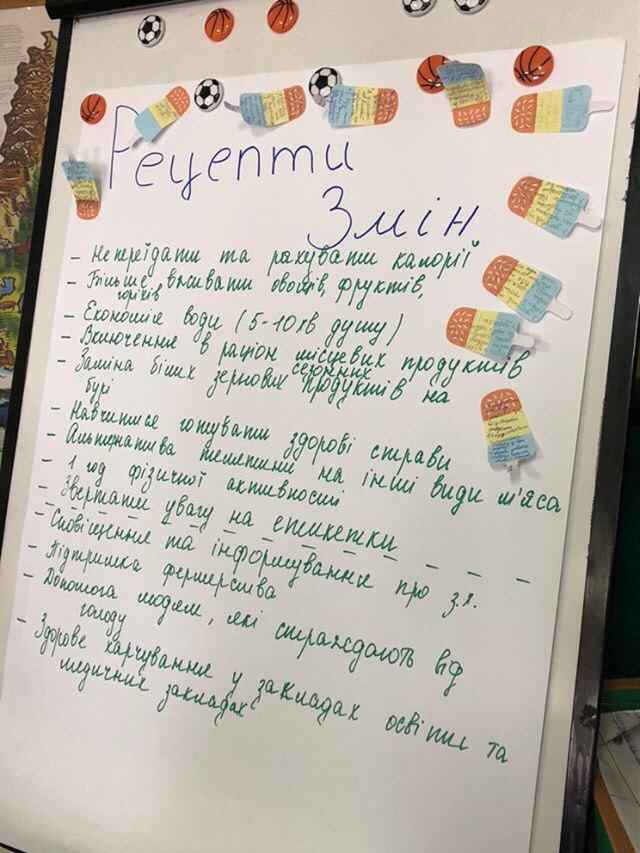 Рецепти
Змін
- Не переїдати та рахувати калорії
- Більше вживати овочів, фруктів,
горіхів
- Економія води (5-10хв душу)
- Включення в раціон місцевих продуктів
сезонних
- Заміна білих зернових продуктів на
бурі
- Навчитися готувати здорові страви
- Альтернатива телятини на інші види м'яса
- 1 год фізичної активності
- Звертати увагу на етикетки
- Сповіщення та інформування про з.х.
- Підтримка фермерства
- Допомога людям, які страждають від
голоду
- Здорове харчування у закладах освіти та
медичних закладах